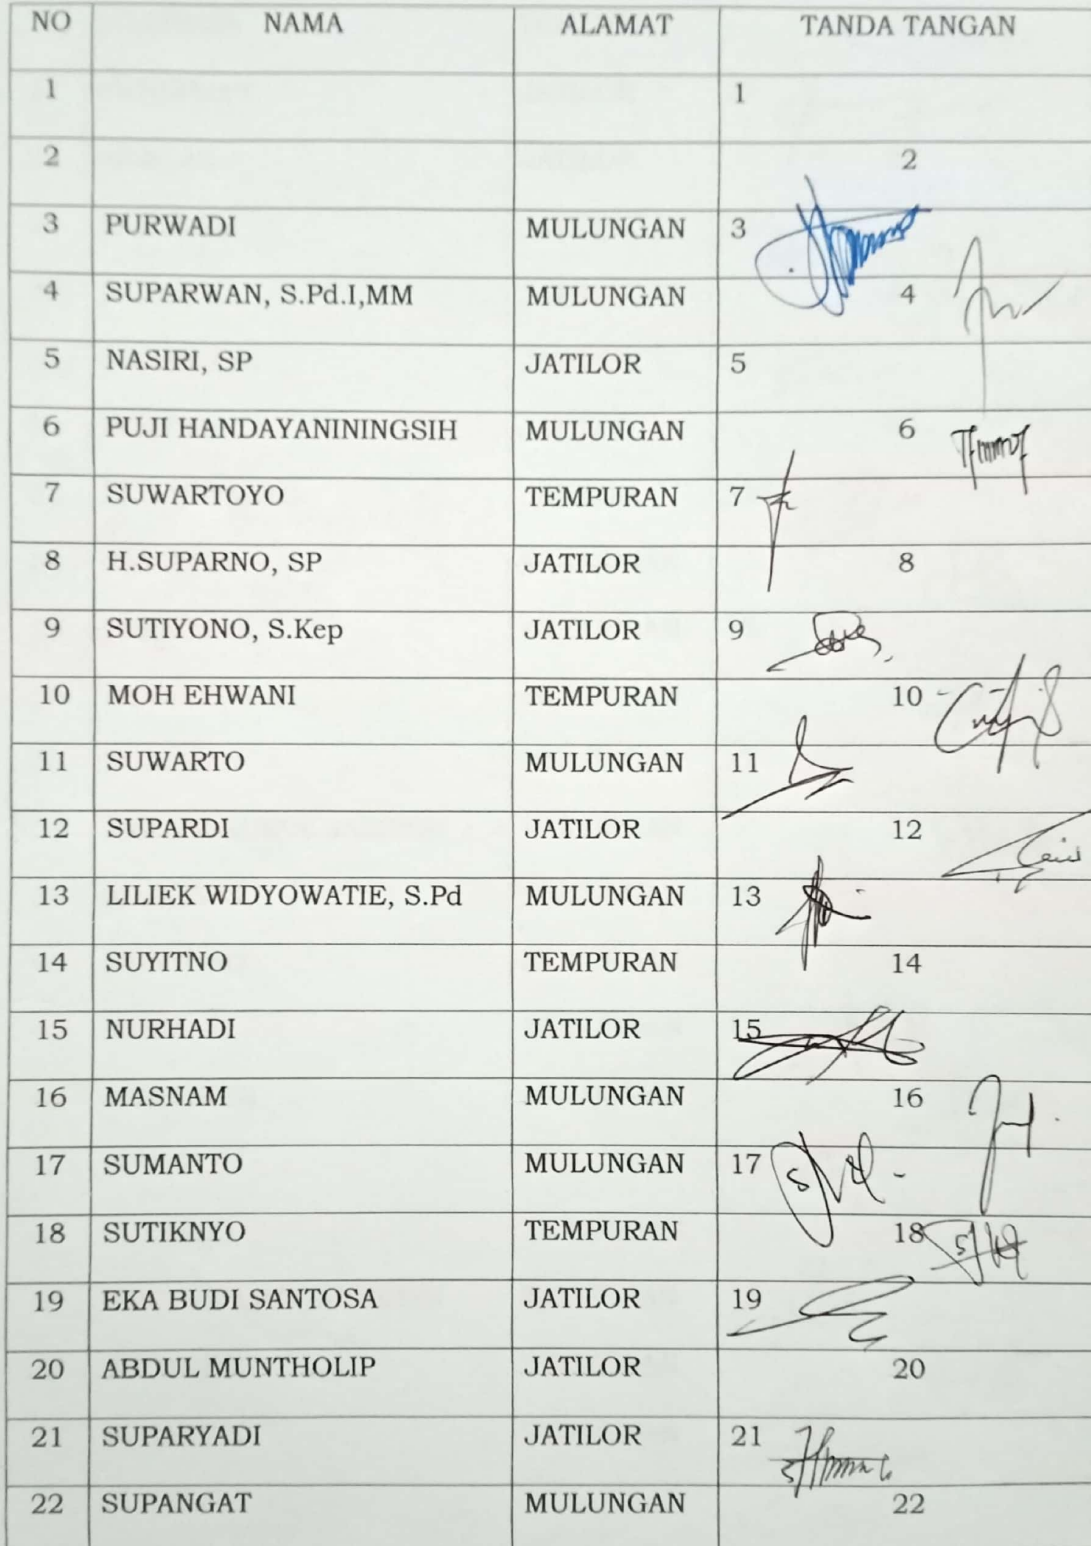 NO NAMA ALAMAT TANDA TANGAN
1 1
2 2
3 PURWADI MULUNGAN 3
4 SUPARWAN, S.Pd.I,MM MULUNGAN 4
5 NASIRI, SP JATILOR 5
6 PUJI HANDAYANININGSIH MULUNGAN 6
7 SUWARTOYO TEMPURAN 7
8 H.SUPARNO, SP JATILOR 8
9 SUTIYONO, S.Kep JATILOR 9
10 MOH EHWANI TEMPURAN 10
11 SUWARTO MULUNGAN 11
12 SUPARDI JATILOR 12
13 LILIEK WIDYOWATIE, S.Pd MULUNGAN 13
14 SUYITNO TEMPURAN 14
15 NURHADI JATILOR 15
16 MASNAM MULUNGAN 16
17 SUMANTO MULUNGAN 17
18 SUTIKNYO TEMPURAN 18
19 EKA BUDI SANTOSA JATILOR 19
20 ABDUL MUNTHOLIP JATILOR 20
21 SUPARYADI JATILOR 21
22 SUPANGAT MULUNGAN 22